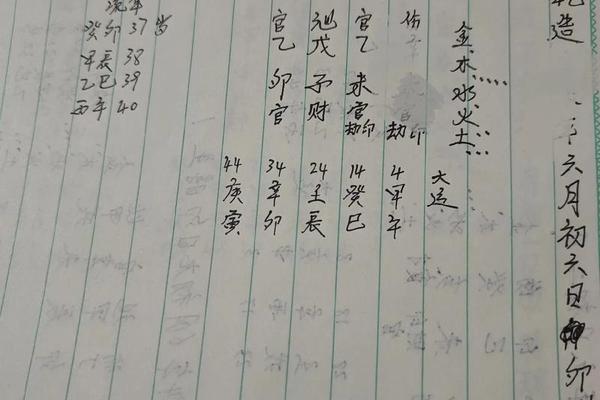 造
六月初六日卯
金木水火土
大运
伤
劫印
4甲午
官乙未官劫印
14癸巳
戊子财
24壬辰
官乙卯官
34辛卯
44庚寅
流年
癸卯 37 岁
甲辰 38
乙巳 39
丙午 40